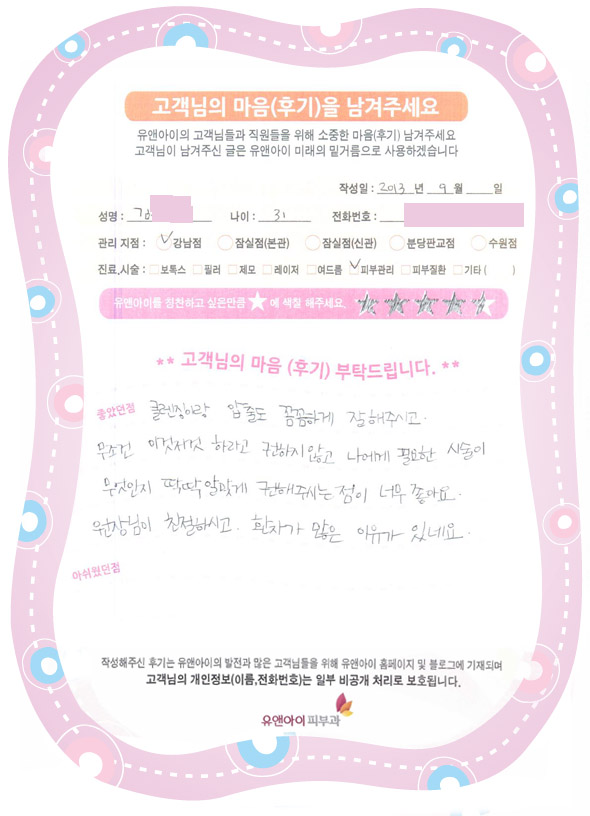 고객님의 마음(후기)을 남겨주세요
유앤아이의 고객님들과 직원들을 위해 소중한 마음(후기) 남겨주세요
고객님이 남겨주신 글은 유앤아이 미래의 밑거름으로 사용하겠습니다
작성일 : 2013 년 9 월 일
성명 : 나이 : 31 전화번호 :
관리 지점 : 강남점 잠실점(본관) 잠실점(신관) 분당판교점 수원점
진료,시술 : 보톡스 필러 제모 레이저 여드름 피부관리 피부질환 기타 ( )
유앤아이를 칭찬하고 싶은만큼 ★ 에 색칠 해주세요.
** 고객님의 마음 (후기) 부탁드립니다. **
좋았던점 클렌징이랑 압출도 꼼꼼하게 잘해주시고.
무조건 이것저것 하라고 권하지않고 나에게 필요한 시술이
무엇인지 딱딱알맞게 권해주시는 점이 너무 좋아요.
원장님이 친절하시고. 환자가 많은 이유가 있네요.
아쉬웠던점
작성해주신 후기는 유앤아이의 발전과 많은 고객님들을 위해 유앤아이 홈페이지 및 블로그에 기재되며
고객님의 개인정보(이름,전화번호)는 일부 비공개 처리로 보호됩니다.
유앤아이피부과